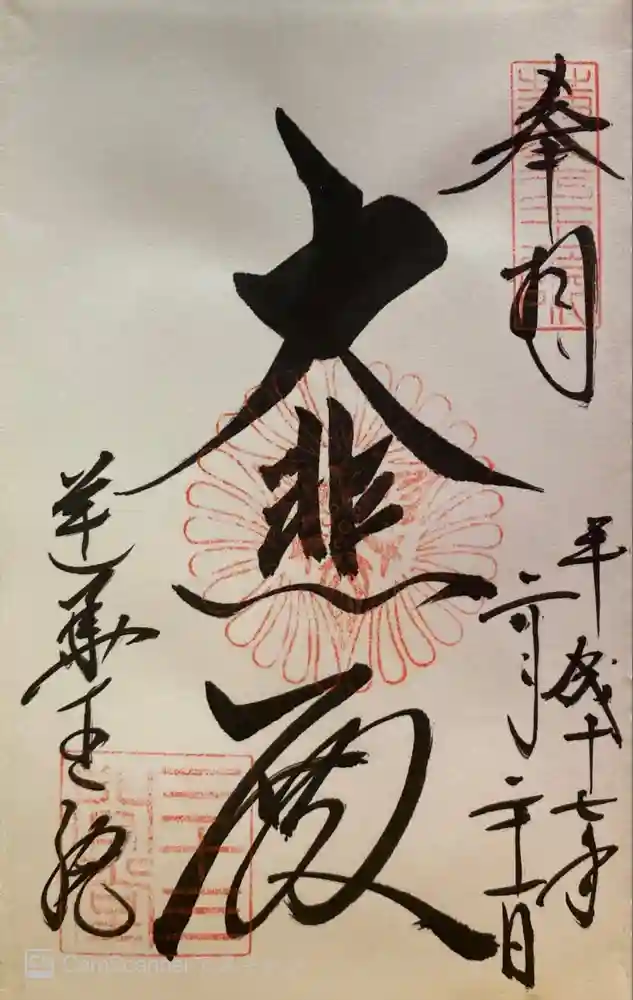 奉拝
平成十七年
二月二十一日
大悲閣
蓮華王院
CS CamScanner